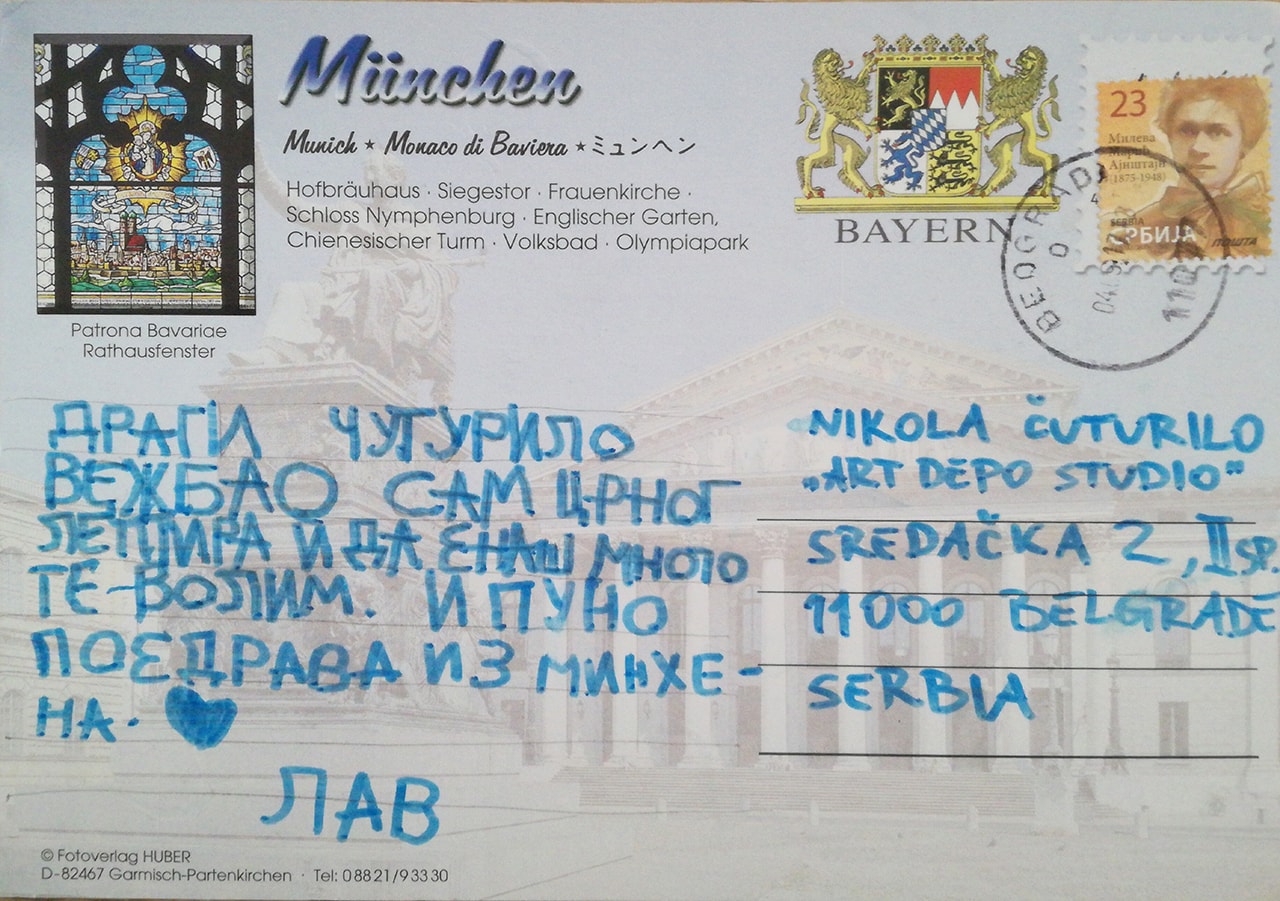 München
Munich ★ Monaco di Baviera ★ ミュンヘン
Hofbräuhaus · Siegestor · Frauenkirche ·
Schloss Nymphenburg · Englischer Garten,
Chienesischer Turm · Volksbad · Olympiapark
Patrona Bavariae
Rathausfenster
BAYERN
23
Милева
Марић
Ајнштајн
(1875-1948)
SERBIA
СРБИЈА
ПОШТА
BEOGRAD
ДРАГИ ЧУТУРИЛО
ВЕЖБАО САМ ЦРНОГ
ЛЕПТИРА И ДА ЕНАШ МНОГО
ТЕ-ВОЛИМ. И ПУНО
ПОЕДРАВА ИЗ МИНХЕ-
НА.
ЛАВ
NIKOLA ČUTURILO
„ART DEPO STUDIO"
SREDAČKA 2, II SP.
11000 BELGRADE
SERBIA
© Fotoverlag HUBER
D-82467 Garmisch-Partenkirchen · Tel: 0 88 21/9 33 30